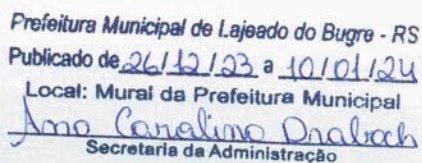 Prefeitura Municipal de Lajeado do Bugre - RS
Publicado de 26/12/23 a 10/01/24
Local: Mural da Prefeitura Municipal
Ana Carolina
Secretaria da Administração